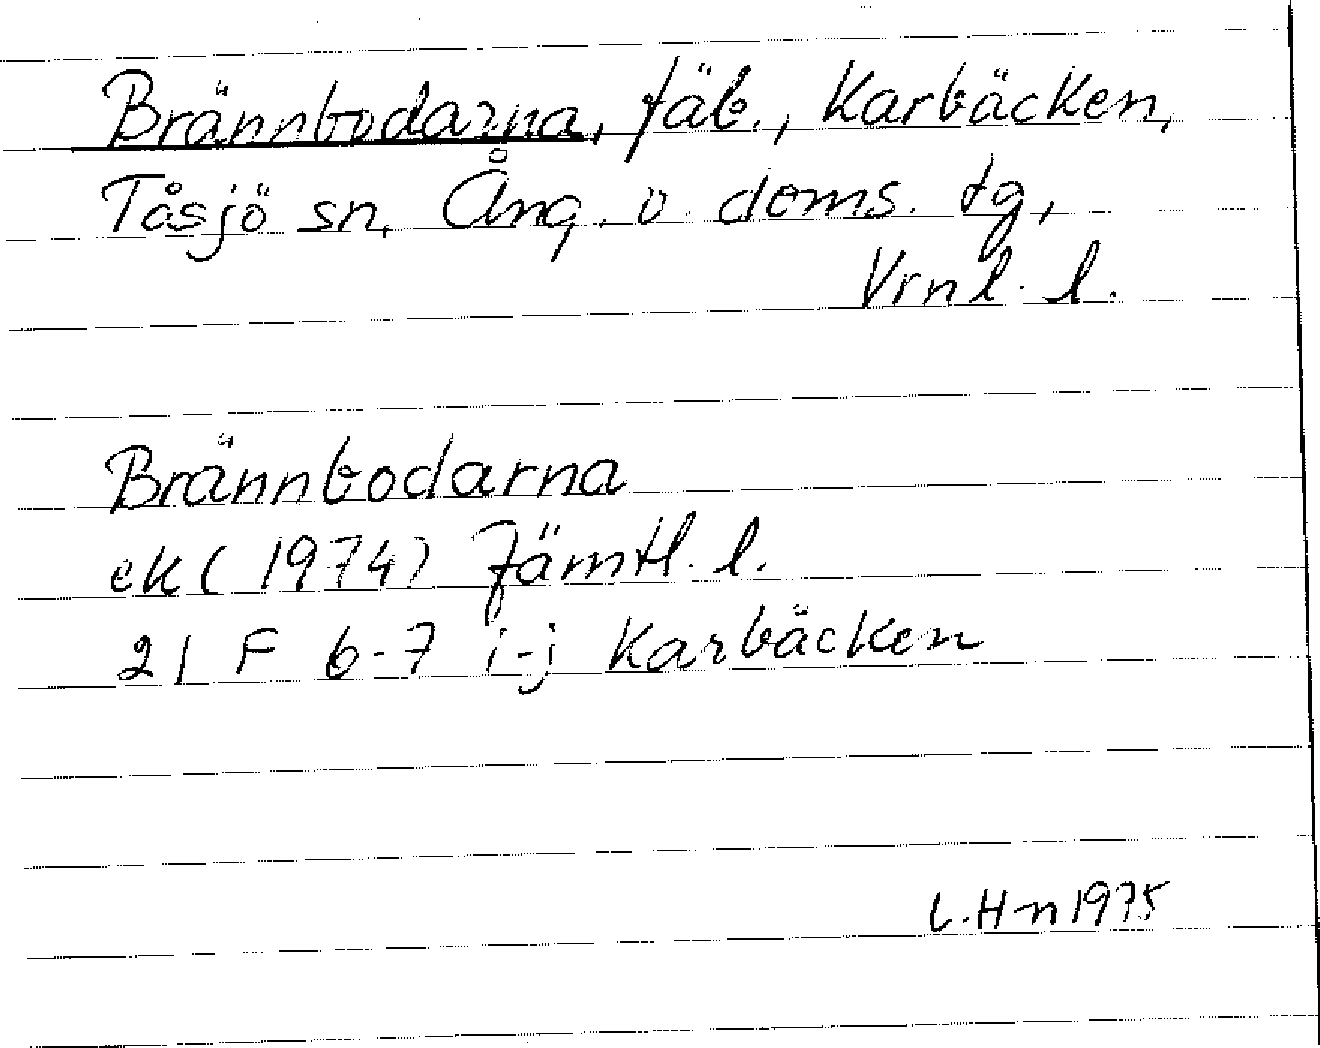 Brännbodarna, fäb., Karbäcken,
Tåsjö sn, Ång. v. doms. tg,
Vrnl. l.
Brännbodarna
ek (1974) Jämtl. l.
21 F 6-7 i-j Karbäcken
L.Hn 1975